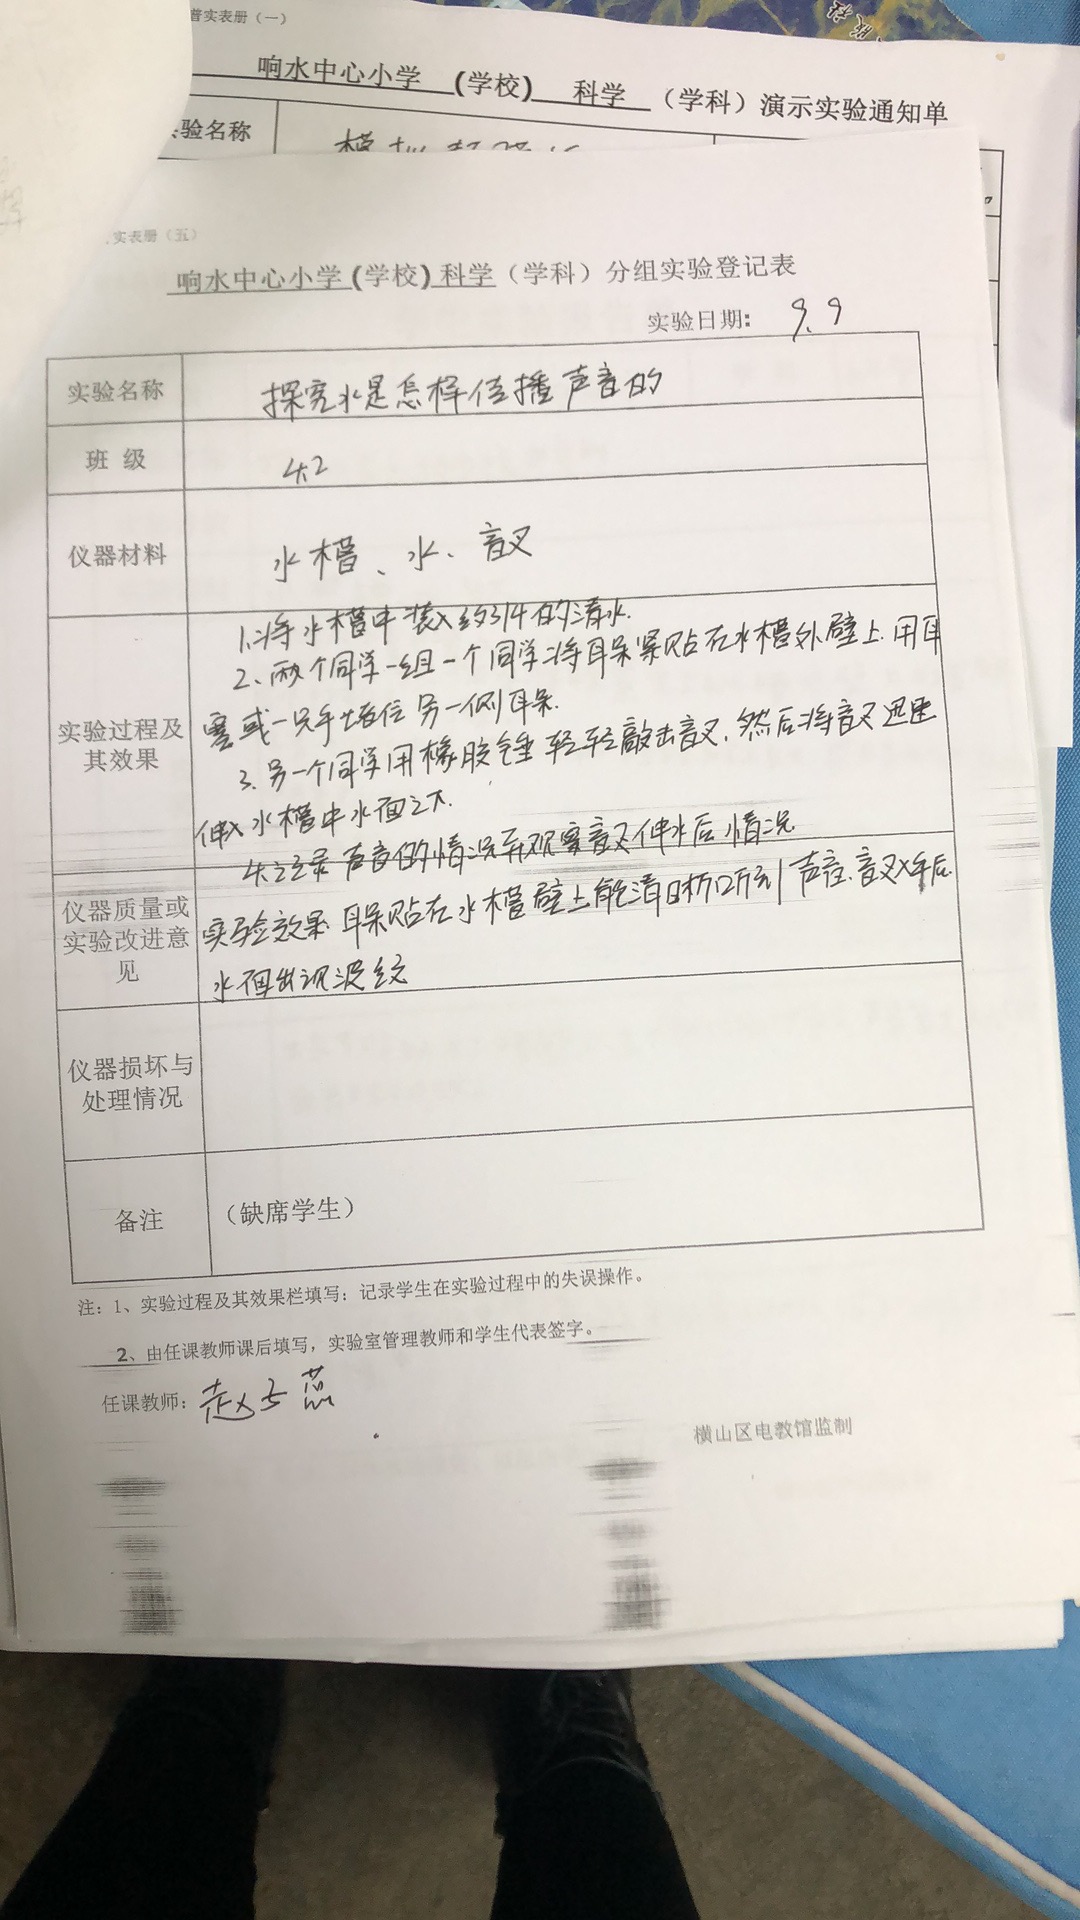 普实表册（一）
响水中心小学 (学校) 科学 （学科）演示实验通知单
验名称
实表册（五）
响水中心小学(学校)科学（学科）分组实验登记表
实验日期: 9.9
实验名称 探究水是怎样传播声音的
班 级 4.2
仪器材料 水槽、水、音叉
实验过程及
其效果
1.将水槽中装入约3/4的清水.
2、两个同学一组一个同学将耳朵紧贴在水槽外壁上.用耳
塞或一只手堵住另一侧耳朵.
3.另一个同学用橡胶锤轻轻敲击音叉.然后将音叉迅速
伸入水槽中水面之下.
4.记录声音的情况并观察音叉伸水后情况
仪器质量或
实验改进意
见
实验效果 耳朵贴在水槽壁上能清晰听到声音.音叉入水后
水面出现波纹
仪器损坏与
处理情况
备注 （缺席学生）
注：1、实验过程及其效果栏填写：记录学生在实验过程中的失误操作。
2、由任课教师课后填写，实验室管理教师和学生代表签字。
任课教师：赵
横山区电教馆监制